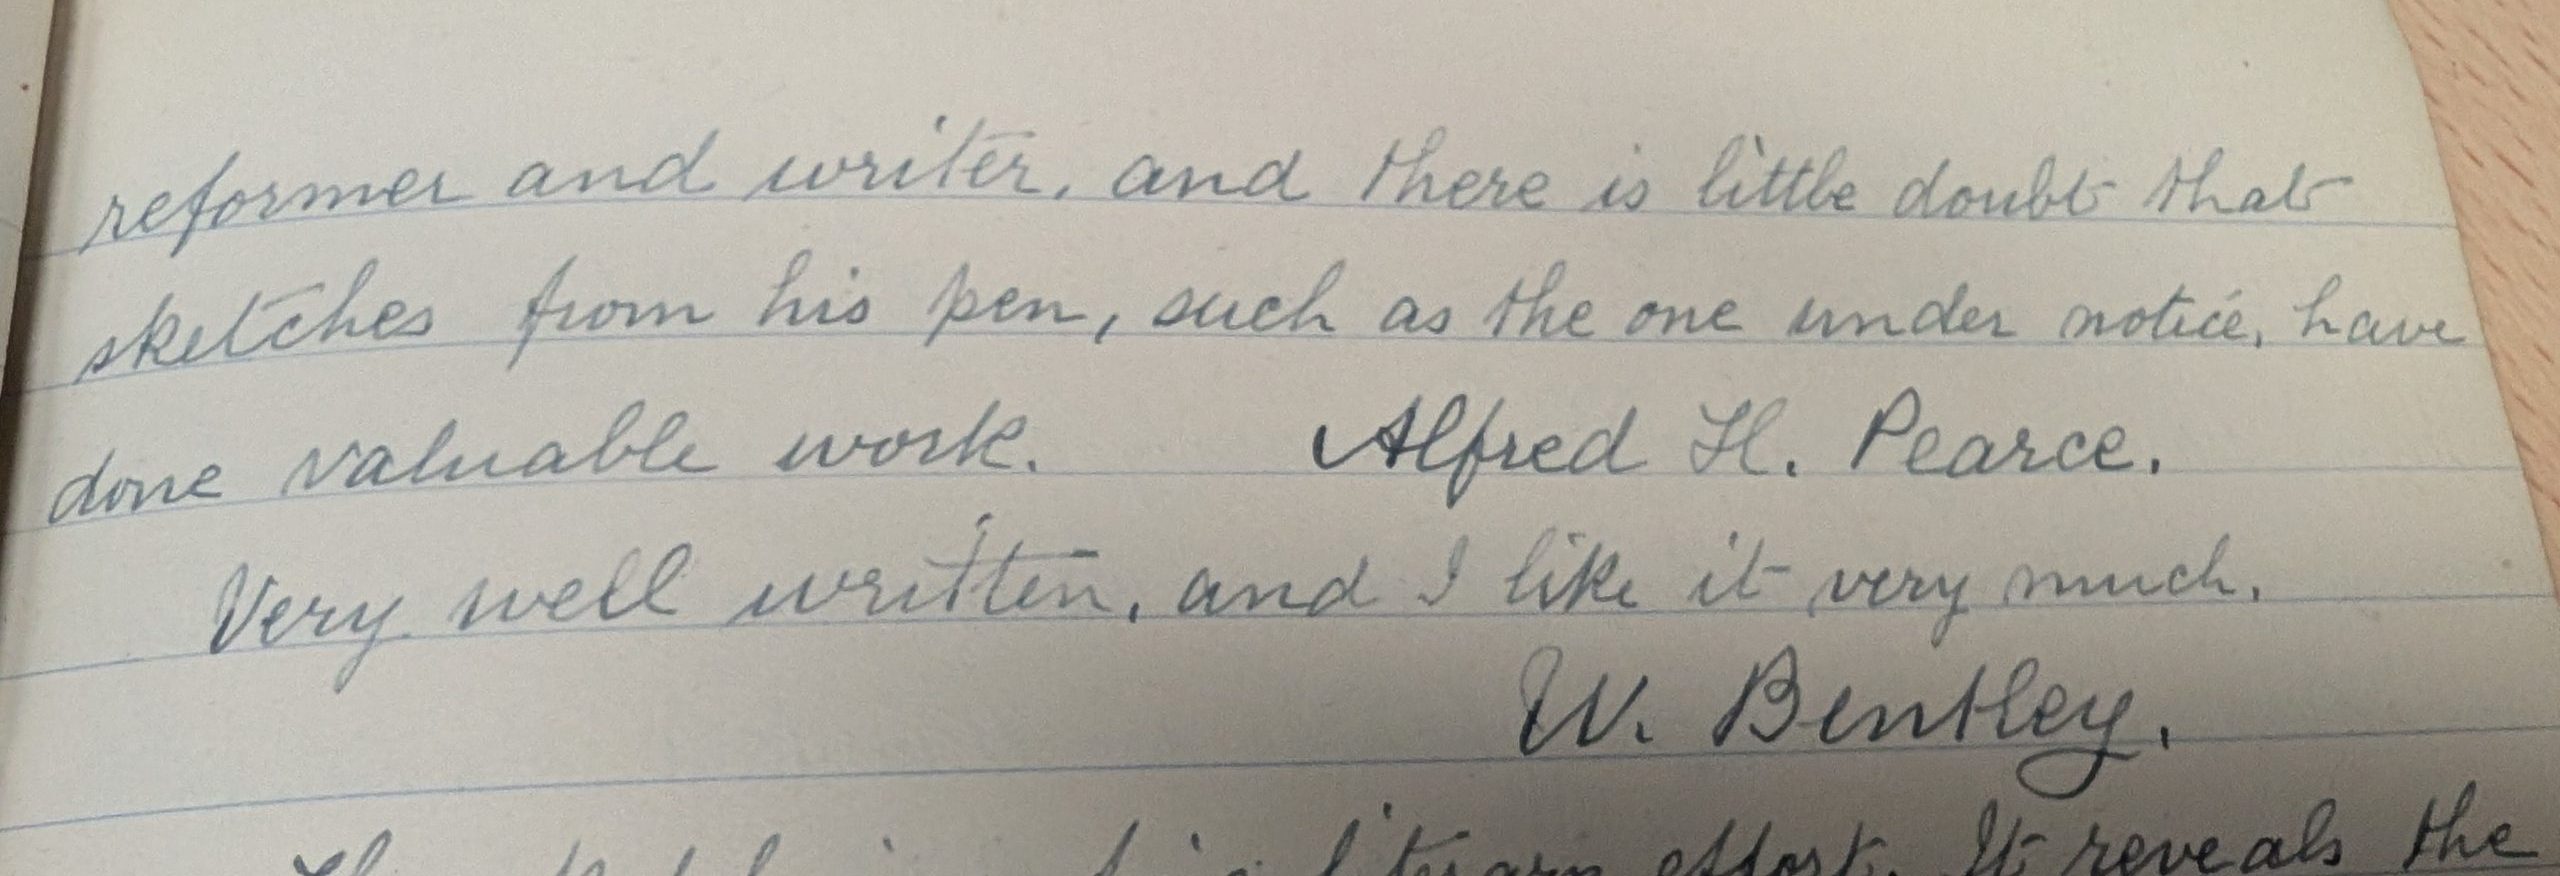 reformer and writer, and there is little doubt that
sketches from his pen, such as the one under notice, have
done valuable work. Alfred H. Pearce.
Very well written, and I like it very much.
W. Bentley.
literary effort. It reveals the